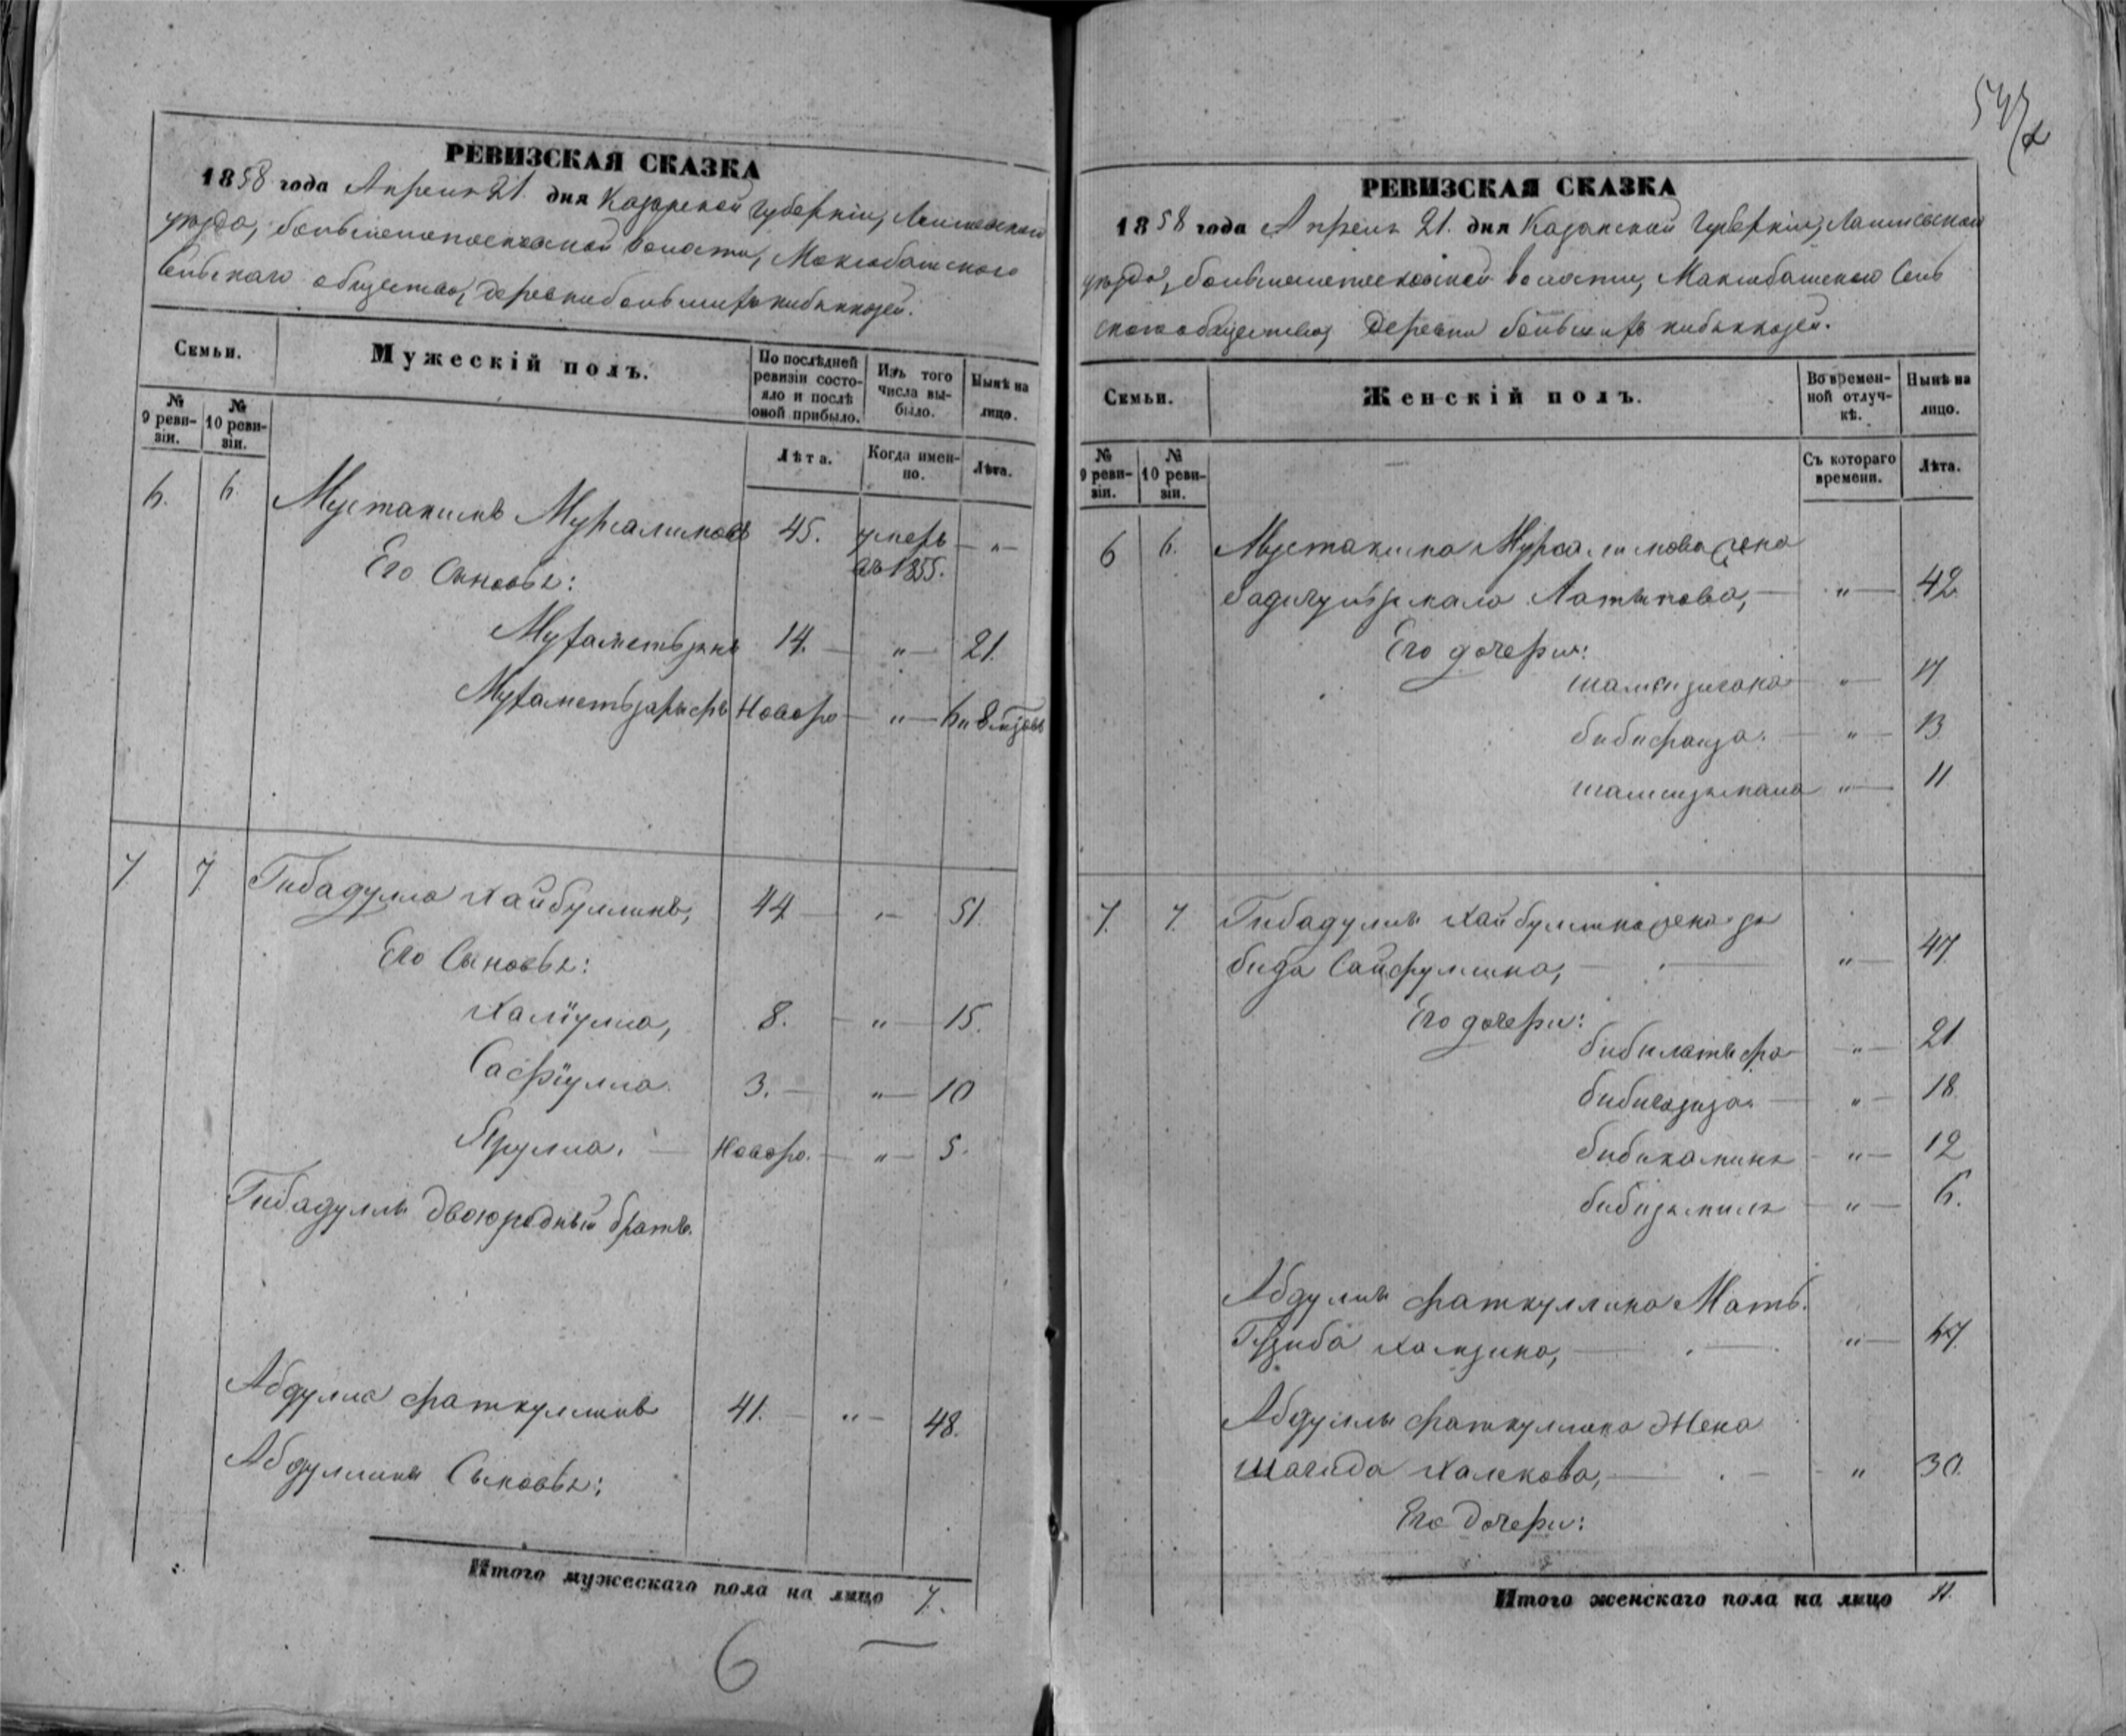 РЕВИЗСКАЯ СКАЗКА
1858 года Апреля 21. дня Казанской Губернiи, Лаишевскаго
уѣзда, волости, Максабашскаго
Сельскаго общества, деревни большихъ кибякъ козей.
Семьи.
Мужескiй полъ.
По послѣдней ревизiи состояло и послѣ оной прибыло.
Изъ того числа выбыло.
Нынѣ на лицо.
№ 9 ревизiи.
№ 10 ревизiи.
Лѣта.
Когда именно.
Лѣта.
6. 6 Мустакимъ Мурсалимовъ 45. умеръ — „ —
въ 1855.
Его Сыновья:
Мухаметьзянъ 14. — „ — 21.
Мухаметьзарыфъ Новоро — „ — 6 „ 8 мцовъ
7 7 Гибадулла Хайбуллинъ, 44 — „ — 51.
Его Сыновья:
Халiулла, 8. — „ — 15.
Сафiулла. 3. — „ — 10
Ярулла. — Новоро. — „ — 5.
Гибадуллы двоюродный братъ.
Абдулла Фаткуллинъ 41. — „ — 48.
Абдуллины Сыновья:
Итого мужескаго пола на лицо 7.
6
РЕВИЗСКАЯ СКАЗКА
1858 года Апреля 21. дня Казанской Губернiи, Лаишевскаго
уѣзда, волости, Максабашскаго Сель
скаго общества, Деревни большихъ кибякъ козей.
Семьи.
Женскiй полъ.
Во временной отлучкѣ.
Нынѣ на лицо.
№ 9 ревизiи.
№ 10 ревизiи.
Съ котораго времени.
Лѣта.
6 6. Мустакима Мурсалимова жена
Латыпова, — „ — 42.
Его дочери:
— „ — 17
бибифаиза. — „ — 13
шамсизямала „ — 11
7. 7. Гибадуллы Хайбуллина жена за
бида Сайфуллина, — „ — 47
Его дочери:
бибилатыфа — „ — 21
бибигазиза. — „ — 18
бибикамиля — „ — 12
бибизямиля — „ — 6.
Абдуллы Фаткуллина Мать.
Гузиба Хамзина, — „ — 67.
Абдуллы Фаткуллина Жена
шагида Халекова, — „ 30.
Его Дочери:
Итого женскаго пола на лицо 11.